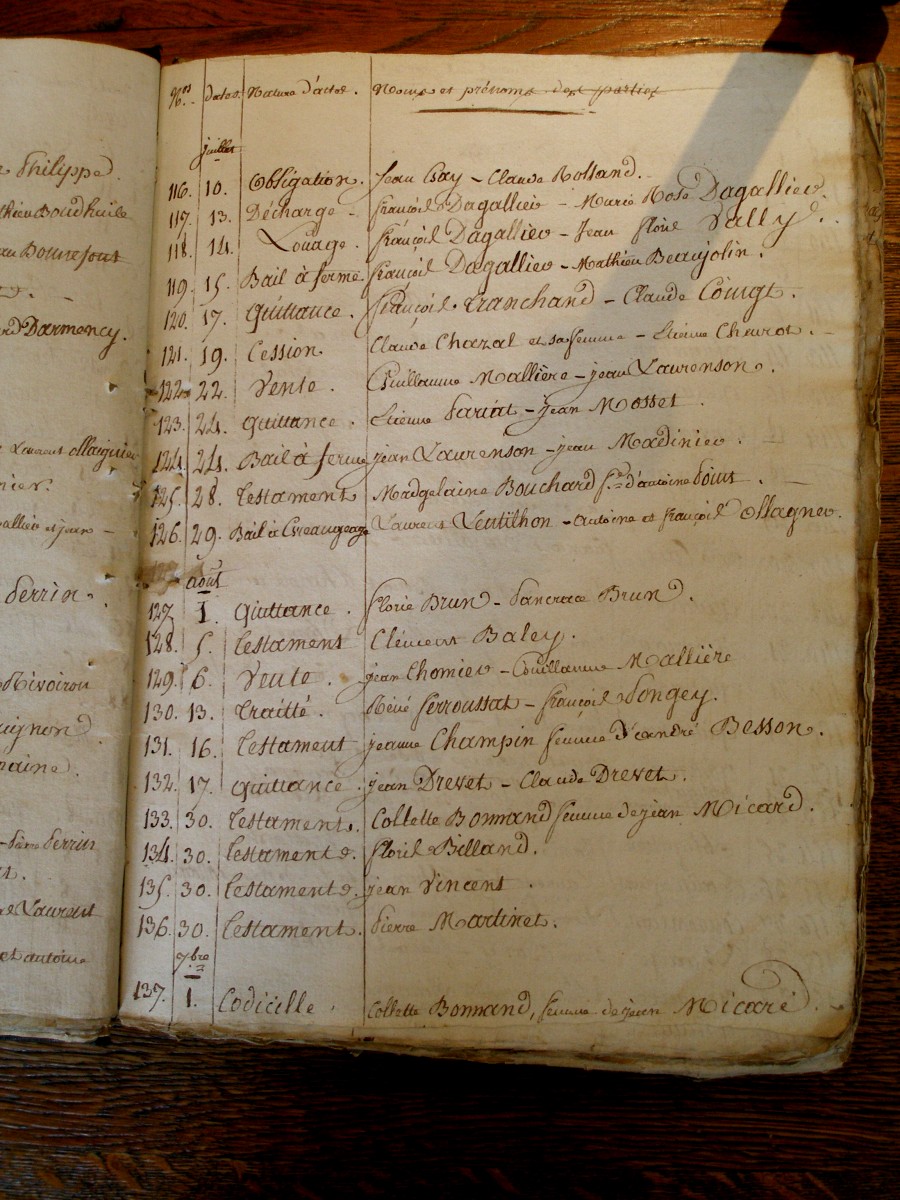 Philippe
Boudhuile
Bonnefont
Darmency.
Laurent Ollaignier
Perrin.
Rivoiron
Pierre Perrin
Laurent
et antoine
Nos dates. Nature d'actes. Noms et prénoms des parties
juillet
116. 10. Obligation. Jean Gay - Claude Rolland.
117. 13. Décharge - françois Dagallier - Marie Rose Dagallier.
118. 14. Louage. françois Dagallier - Jean florie Vally.
119. 15. Bail à ferme. françois Dagallier - Mathieu Beaujolin.
120. 17. Quittance. françois Tranchand - Claude
121. 19. Cession. Claude Chazal et sa femme - Etienne
122. 22. Vente. Guillaume Mallière - jean Laurenson.
123. 24. quittance. Etienne Pariat - jean Mosset.
124. 24. Bail à ferme jean Laurenson - jean Madinier.
125. 28. testament Madgelaine Bouchard fe d'antoine
126. 29. Bail à Laurent Ventilhon - antoine et françois Ollagner.
août
127. 1. quittance. florie Brun - Pancrace Brun.
128. 5. testament Clément Baley.
129. 6. Vente. jean Thomier - Guillaume Mallière
130. 13. traitté. Réné ferroussat - françois Songey.
131. 16. testament jeanne Champin femme d'andré Besson.
132. 17. quittance. jean Drevet - Claude Drevet.
133. 30. testament. Collette Bonnand femme de jean Micard.
134. 30. testament. florie Billand.
135. 30. testament. jean Vincent.
136. 30. testament. Pierre Martinet.
7bre
137. 1. Codicille. Collette Bonnand, femme de jean Micard.